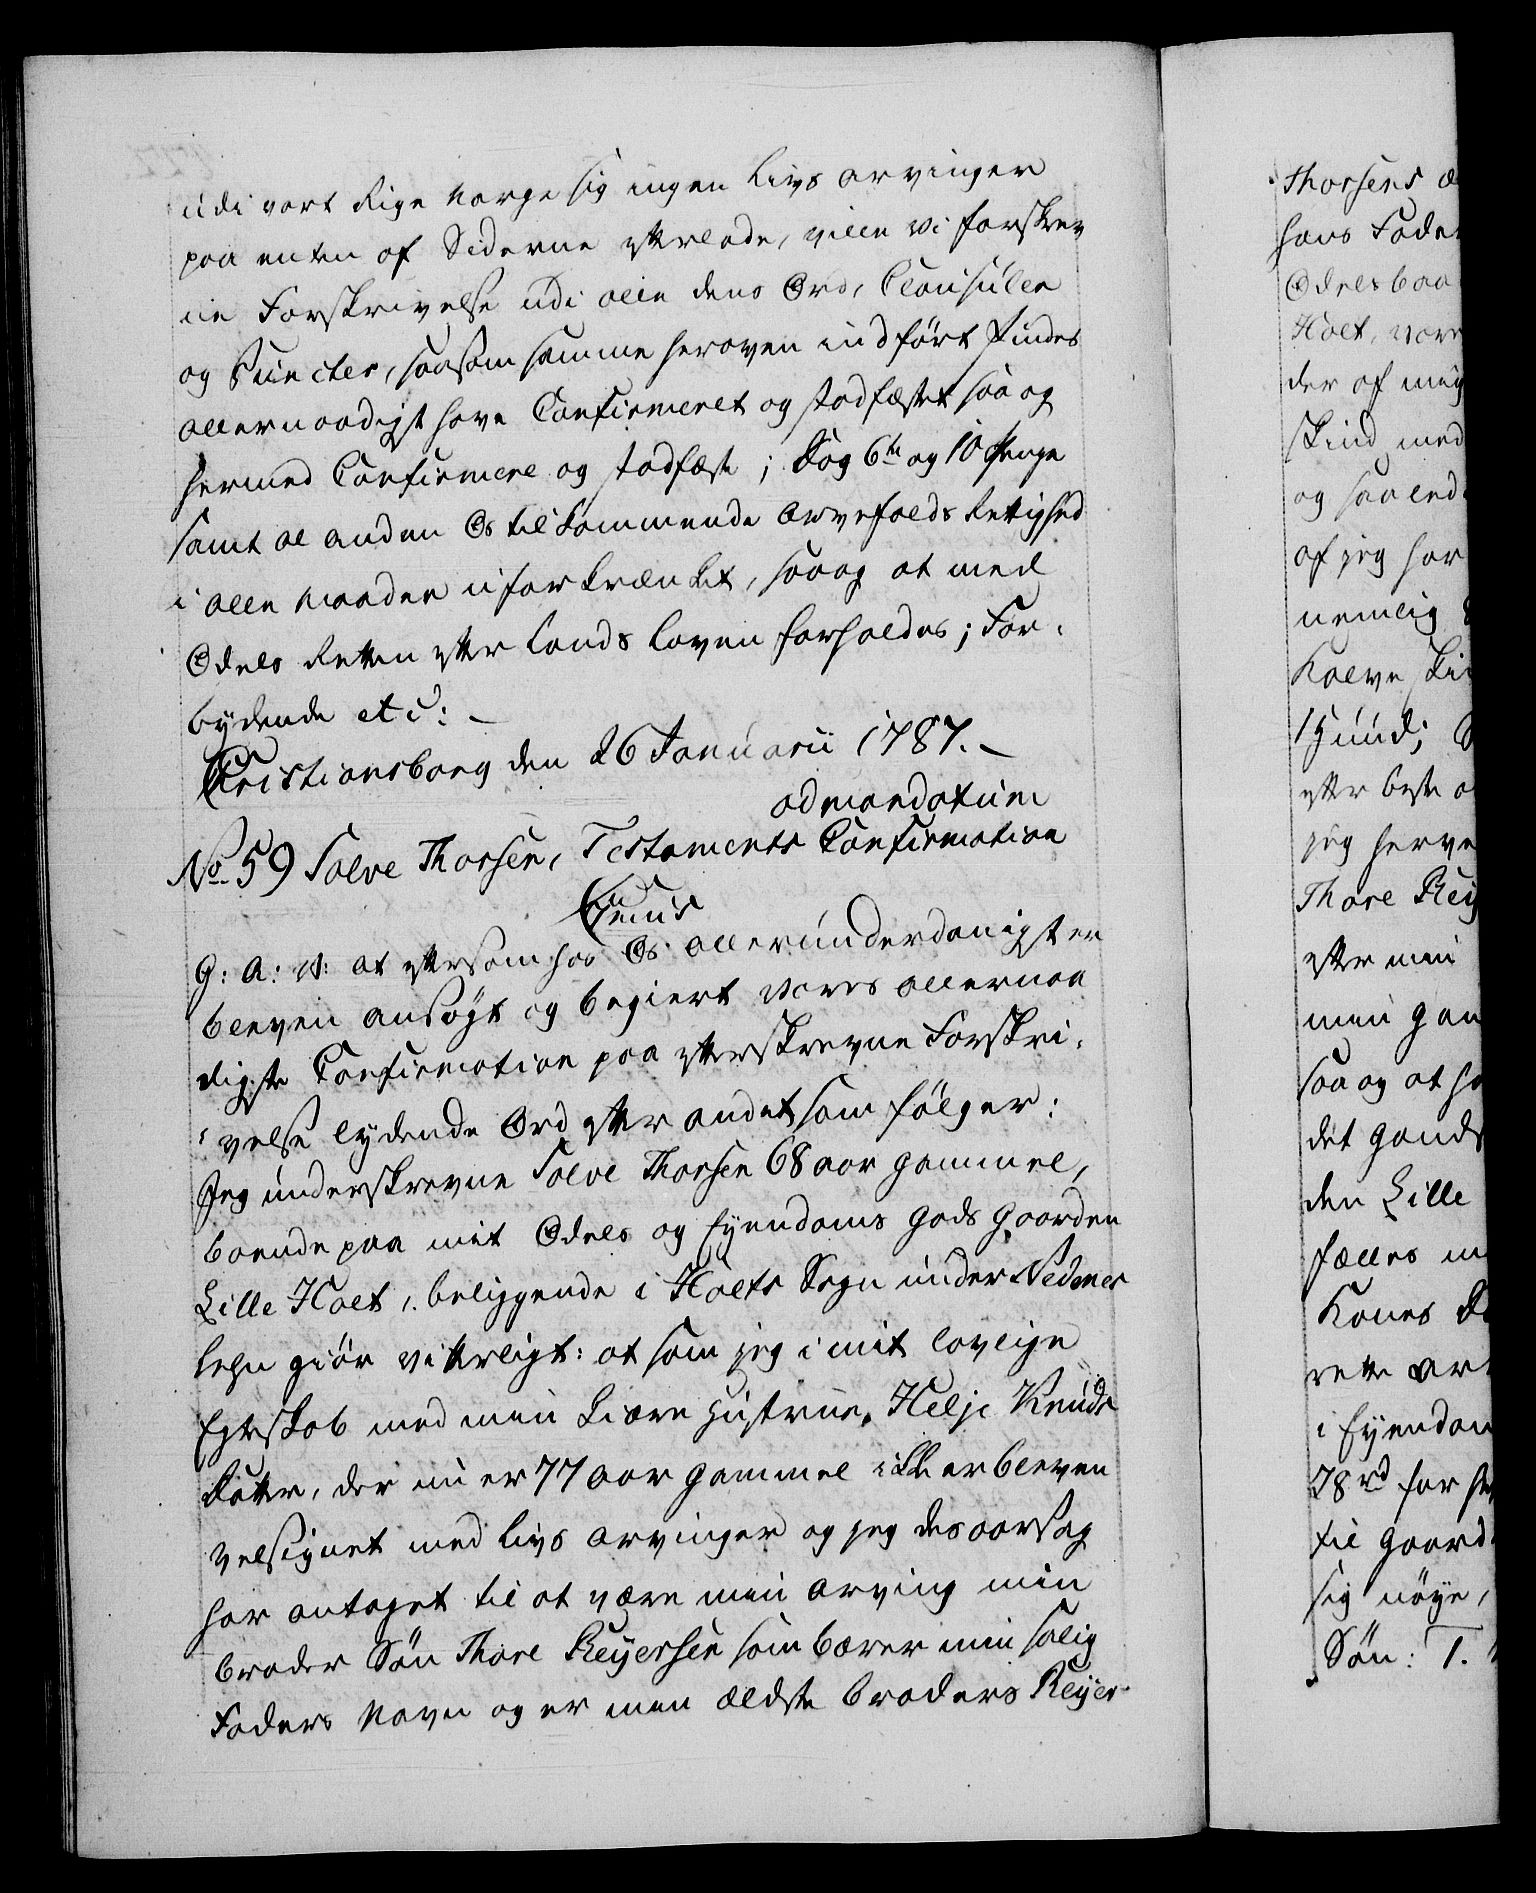 udi vort Rige Norge sig ingen Livs arvinger
paa enten af Siderne efterlade, ville Vi forskrev
ne Forskrivelse udi alle dens Ord, Clausuler
og Puncter, saasom samme heroven indført findes
allernaadigst have Confirmeret og stadfæstet saa og
hermed Confirmere og stadfæste; dog 6te og 10 Penge
samt al anden Os tilkommende Arvefalds Rettighed
i alle Maader uforkrænket, saa og at med
Odels Retten efter Lands Loven forholdes; For-
bydende etc: -
Christiansborg den 26 Januarii 1787. -
ad mandatum
No 59 Salve Thorsen, Testaments Confirmation
Gratis
G: A: V: at eftersom hos Os allerunderdanigst er
bleven ansøgt og begiert Vores allernaa
digste Confirmation paa efterskrevne Forskri-
velse lydende Ord efter andet som følger:
Jeg underskrevne Salve Thorsen 68 aar gammel,
boende paa mit Odels og Eyendoms Gods Gaarden
Lille Holt, beliggende i Holts Sogn under Nedenes
Lehn giør vitterligt: at som jeg i mit lovlige
Egteskab med min kiære Hustrue, Helje Knuds
datter, der nu er 77 aar gammel ikke er bleven
velsignet med Livs arvinger og jeg des aarsag
har antaget til at være min arving min
broder Søn Thore Reyersen som bærer min salig
Faders Navn og er min ældste broders Reyer-
Thorsens
hans Fader
Odelsbaa
Holt, vore
der af mig
skind med
og saaled
af jeg har
nemlig
Kalve ski
1 Hund;
efter beste
jeg herve
Thore Rey
efter min
min gan
saa og at ha
det gands
den Lille
fælles m
Kones
rette ar
i Eyendom
78 rd for
til Gaard
sig nøye,
Søn: T.